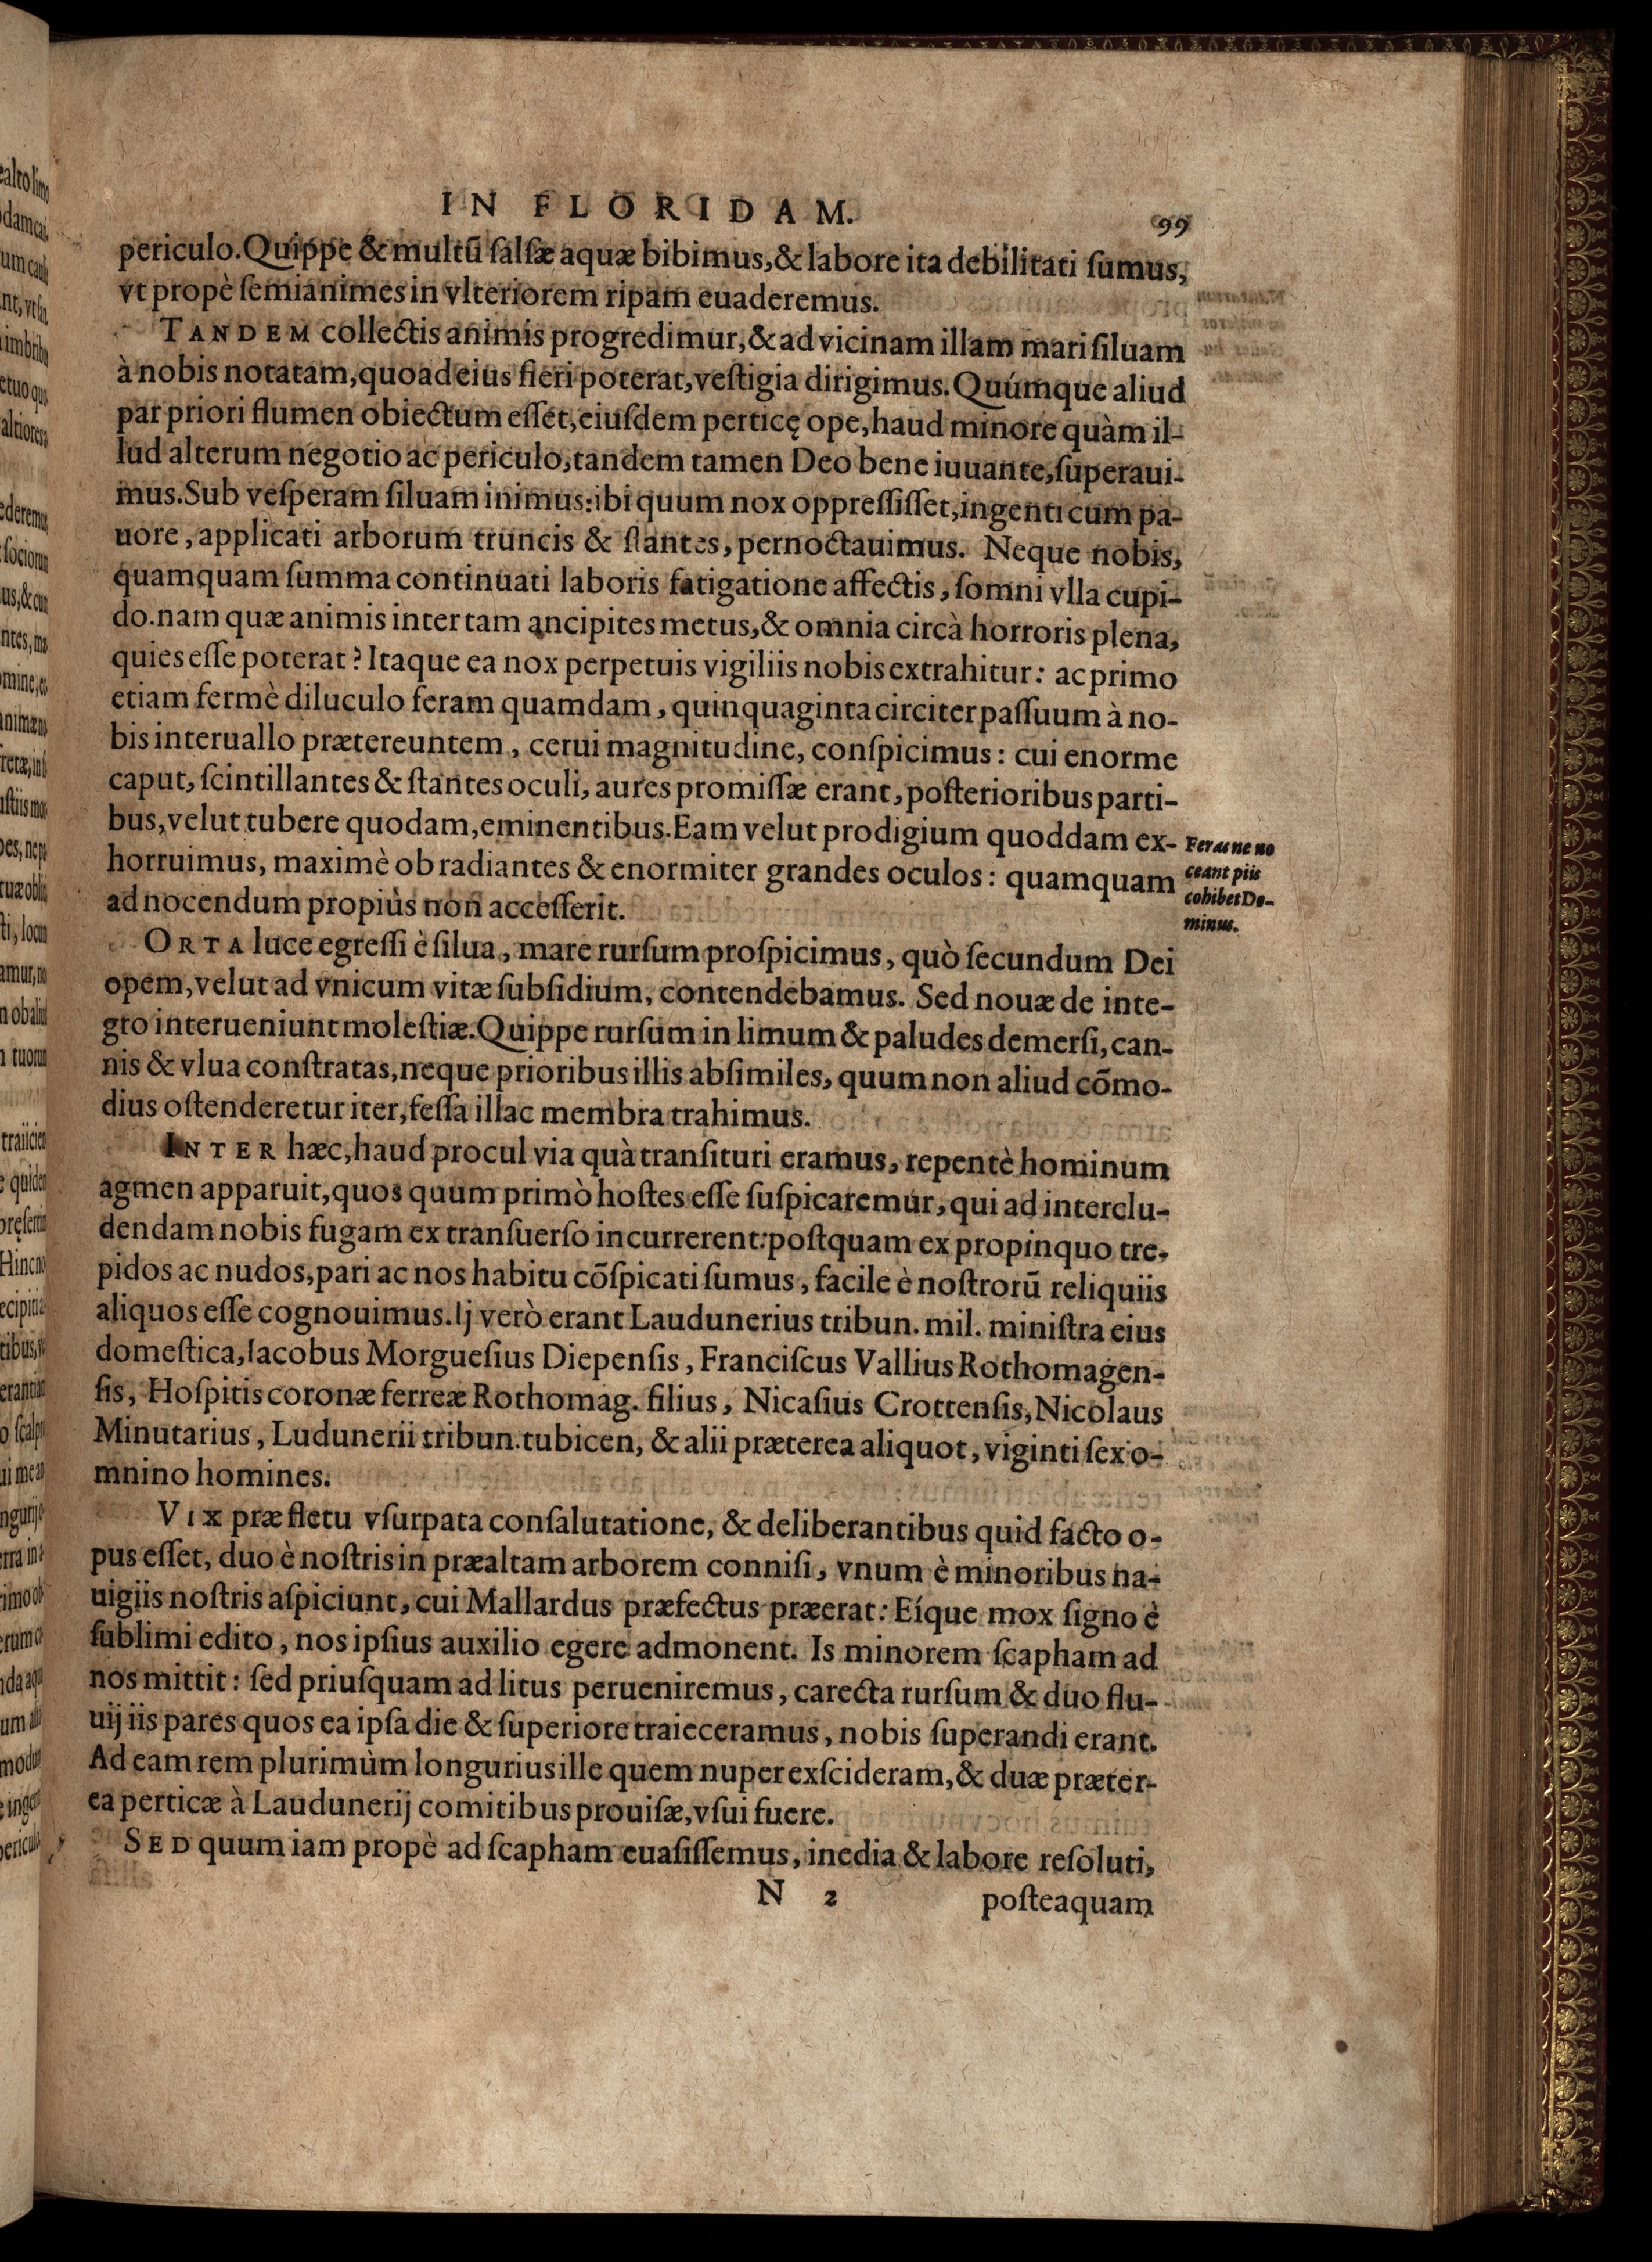 IN FLORIDAM.
99
periculo. Quippe & multũ ſalſæ aquæ bibimus, & labore ita debilitati ſumus,
vt propè ſemianimes in vlteriorem ripam euaderemus.
TANDEM collectis animis progredimur, & ad vicinam illam mari ſiluam
à nobis notatam, quoad eius fieri poterat, veſtigia dirigimus. Quúmque aliud
par priori flumen obiectum eſſet, eiuſdem perticę ope, haud minore quàm il-
lud alterum negotio ac periculo, tandem tamen Deo bene iuuante, ſuperaui-
mus. Sub veſperam ſiluam inimus: ibi quum nox oppreſſiſſet, ingenti cum pa-
uore, applicati arborum truncis & ſtantes, pernoctauimus. Neque nobis,
quamquam ſumma continuati laboris fatigatione affectis, ſomni vlla cupi-
do. nam quæ animis inter tam ancipites metus, & omnia circà horroris plena,
quies eſſe poterat? Itaque ea nox perpetuis vigiliis nobis extrahitur: ac primo
etiam fermè diluculo feram quamdam, quinquaginta circiter paſſuum à no-
bis interuallo prætereuntem, cerui magnitudine, conſpicimus: cui enorme
caput, ſcintillantes & ſtantes oculi, aures promiſſæ erant, poſterioribus parti-
bus, velut tubere quodam, eminentibus. Eam velut prodigium quoddam ex-
horruimus, maximè ob radiantes & enormiter grandes oculos: quamquam
ad nocendum propiùs non acceſſerit.
Feræ ne no
ceant piis
cohibet Do-
minus.
ORTA luce egreſſi è ſilua, mare rurſum proſpicimus, quò ſecundum Dei
opem, velut ad vnicum vitæ ſubſidium, contendebamus. Sed nouæ de inte-
gro interueniunt moleſtiæ. Quippe rurſum in limum & paludes demerſi, can-
nis & vlua conſtratas, neque prioribus illis abſimiles, quum non aliud cõmo-
dius oſtenderetur iter, feſſa illac membra trahimus.
INTER hæc, haud procul via quà tranſituri eramus, repentè hominum
agmen apparuit, quos quum primò hoſtes eſſe ſuſpicaremur, qui ad interclu-
dendam nobis fugam ex tranſuerſo incurrerent: poſtquam ex propinquo tre-
pidos ac nudos, pari ac nos habitu cõſpicati ſumus, facile è noſtrorũ reliquiis
aliquos eſſe cognouimus. Ij verò erant Laudunerius tribun. mil. miniſtra eius
domeſtica, Iacobus Morgueſius Diepenſis, Franciſcus Vallius Rothomagen-
ſis, Hoſpitis coronæ ferreæ Rothomag. filius, Nicaſius Crottenſis, Nicolaus
Minutarius, Ludunerii tribun. tubicen, & alii præterea aliquot, viginti ſex o-
mnino homines.
VIX præ fletu vſurpata conſalutatione, & deliberantibus quid facto o-
pus eſſet, duo è noſtris in præaltam arborem conniſi, vnum è minoribus na-
uigiis noſtris aſpiciunt, cui Mallardus præfectus præerat: Eíque mox ſigno è
ſublimi edito, nos ipſius auxilio egere admonent. Is minorem ſcapham ad
nos mittit: ſed priuſquam ad litus perueniremus, carecta rurſum & duo flu-
uij iis pares quos ea ipſa die & ſuperiore traieceramus, nobis ſuperandi erant.
Ad eam rem plurimùm longurius ille quem nuper exſcideram, & duæ præter-
ea perticæ à Laudunerij comitibus prouiſæ, vſui fuere.
SED quum iam propè ad ſcapham euaſiſſemus, inedia & labore reſoluti,
N 2
poſteaquam